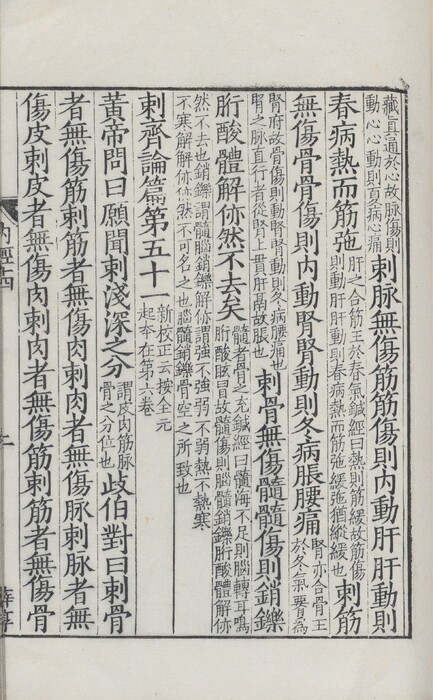 藏眞通於心故脉傷則
動心心動則夏病心痛
刺脉無傷筋筋傷則内動肝肝動則
春病熱而筋㢮
肝之合筋王於春氣鍼經曰熱則筋緩故筋傷
則動肝肝動則春病熱而筋㢮緩㢮猶縱緩也
刺筋
無傷骨骨傷則内動腎腎動則冬病脹腰痛
腎亦合骨王
於冬氣腰為
腎府故骨傷則動腎腎動則冬病腰痛也
腎之脉直行者從腎上貫肝鬲故脹也
刺骨無傷髓髓傷則銷鑠
胻酸體解㑊然不去矣
髓者骨之充鍼經曰髓海不足則腦轉耳鳴
胻酸眩冒故髓傷則腦髓銷鑠胻酸體解㑊
然不去也銷鑠謂髓腦銷鑠解㑊謂強不強弱不弱熱不熱寒
不寒解解㑊㑊然不可名之也腦髓銷鑠骨空之所致也
刺齊論篇第五十一
新校正云按全元
起本在第六卷
黄帝問曰願聞刺淺深之分
謂皮肉筋脉
骨之分位也
歧伯對曰刺骨
者無傷筋刺筋者無傷肉刺肉者無傷脉刺脉者無
傷皮刺皮者無傷肉刺肉者無傷筋刺筋者無傷骨
内經十四